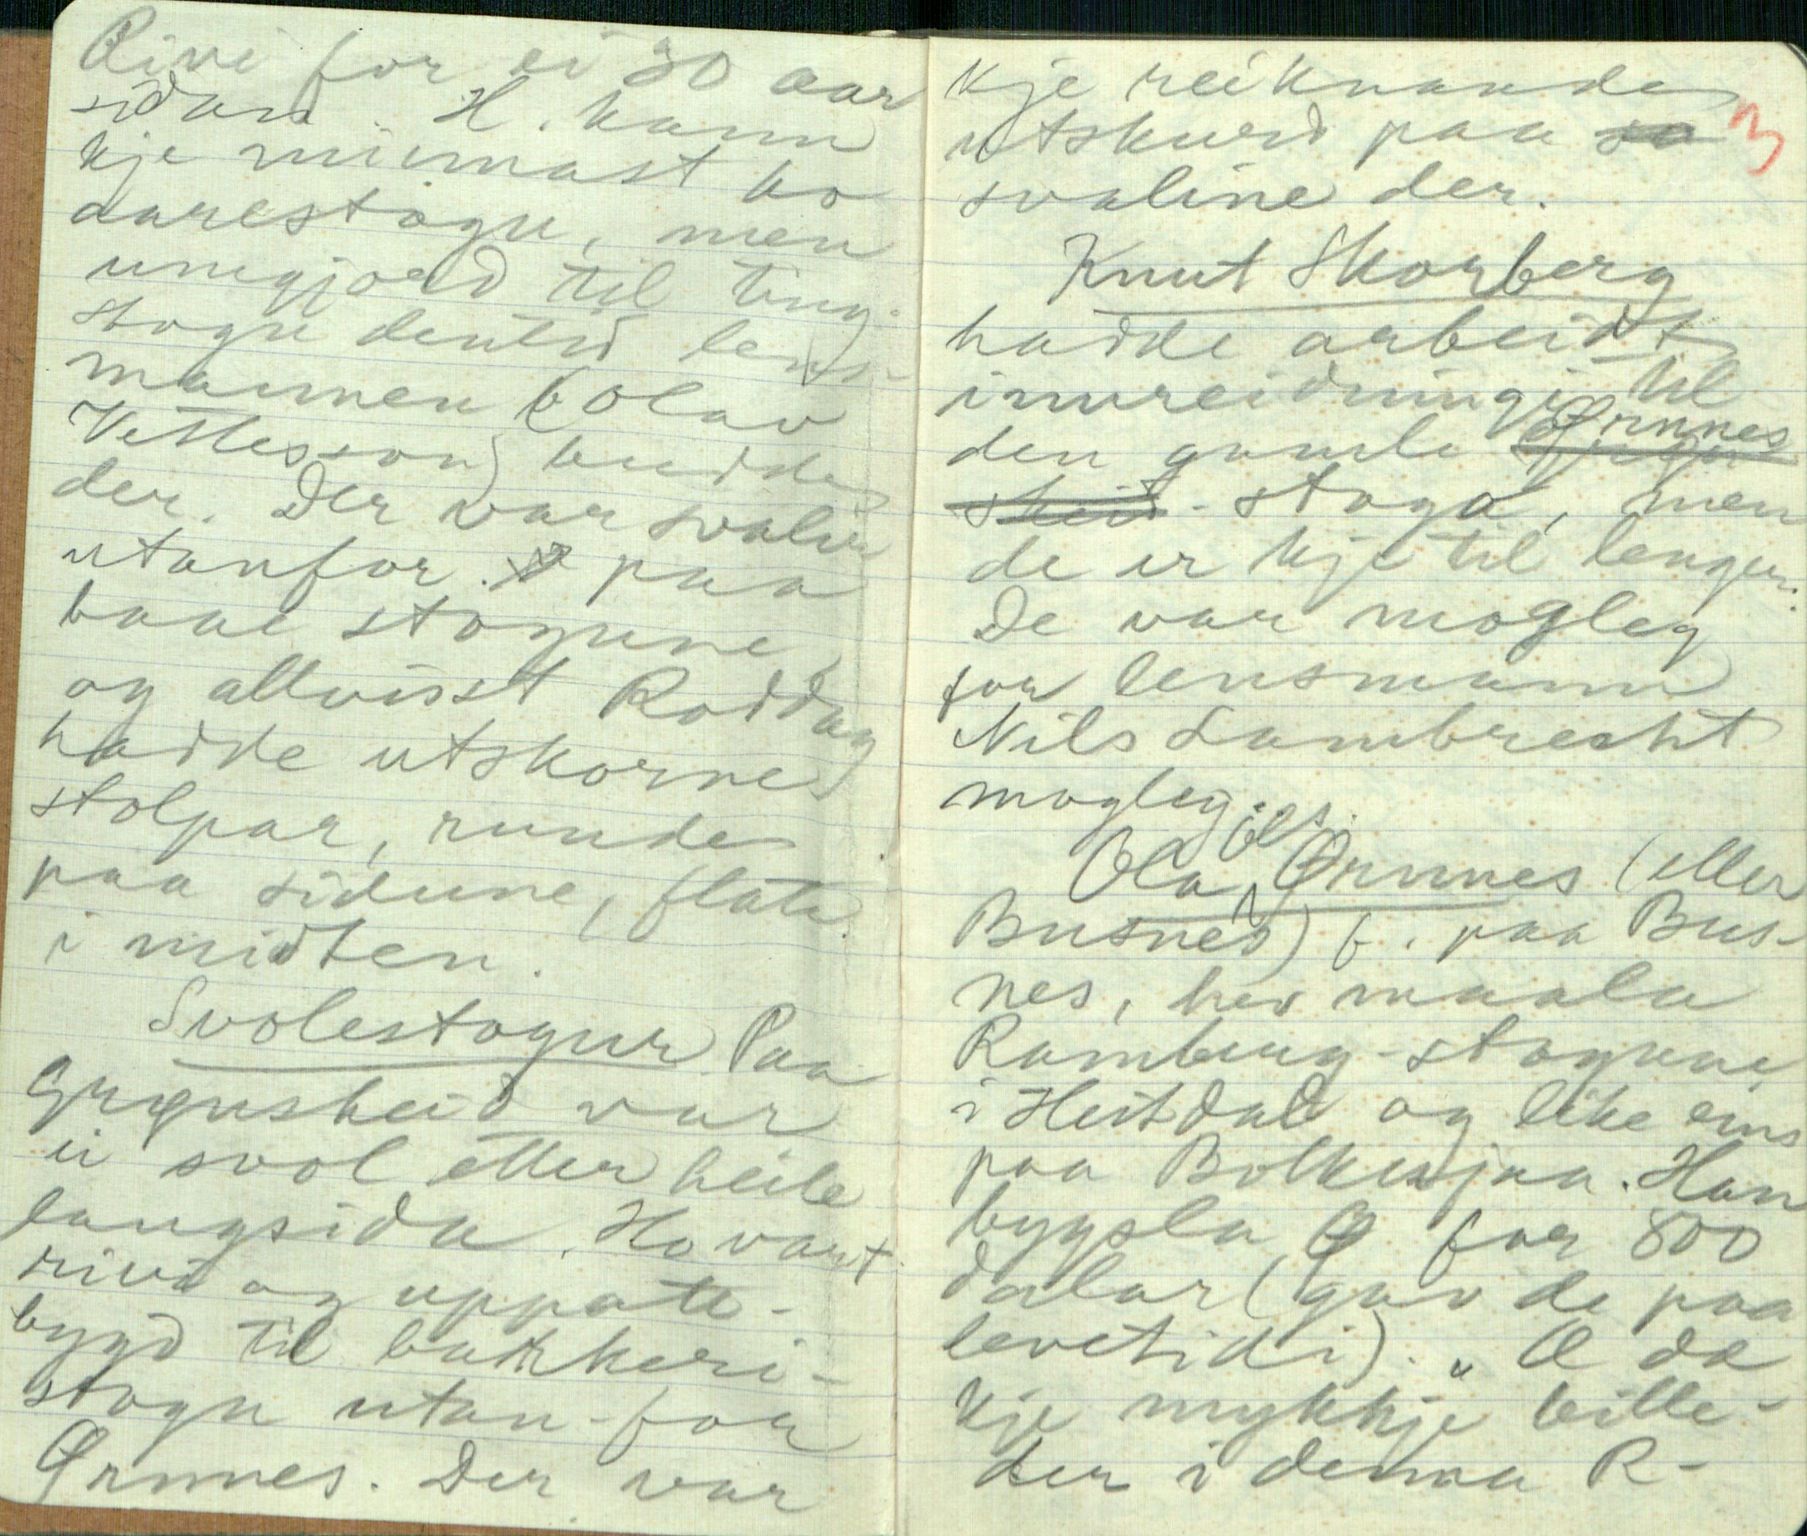 Rivi for ei 30 aar
sidan. H. kann
kje minnast ho
aarestogu, men
umgjord til ting-
stogu dentid lens-
mannen (Olav
Vetlesson) budde
der. Der var svalir
utanfor. paa
baae stogune,
og allvisst Roddag
hadde utskorne
stolpar, runde
paa sidune, flate
i midten.
Svolestogur Paa
Grgusheid var
ei svol etter heile
langsida. Ho vart
rivi og uppatt-
bygd til bakkeri-
stogu utan-for
Ørnnes. Der var
kje reiknande
3
utskurd paa so
svaline der.
Knut Skorberg
hadde arbeidt
innreidningi til
den gamle Ørnnes
skeid - stoga, men
de er kje til lenger.
De var mogleg
for lensmann
Nils Lambrecht
mogleg.
Ola Øls. Ørnnes (eller
Busnes) f. paa Bus-
nes, hev maala
Ramberg-stogune
i Heitdal og like eins
paa Bolkesjaa. Han
bygsla Ø for 800
dalar (gav de paa
levetidi). "Æ da
kje mykkje bille-
der i denna R-